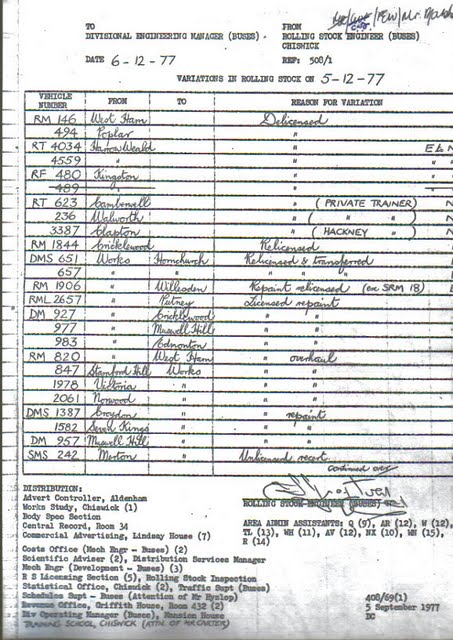 TO
DIVISIONAL ENGINEERING MANAGER (BUSES)
FROM
ROLLING STOCK ENGINEER (BUSES)
CHISWICK
DATE 6-12-77
REF: 508/1
VARIATIONS IN ROLLING STOCK ON 5-12-77
VEHICLE NUMBER FROM TO REASON FOR VARIATION
RM 146 West Ham Delicensed
494 Poplar "
RT 4034 Harrow Weald "
4559 " "
RF 480 Kingston "
489 " "
RT 623 Camberwell " (PRIVATE TRAINER)
236 Walworth " ( " " )
3387 Clapton " (HACKNEY " )
RM 1844 Cricklewood Relicensed
DMS 651 Works Hornchurch Relicensed & transferred
657 " " " " "
RM 1906 " Willesden Repaint relicensed (ex SRM 18)
RML 2657 " Putney Licensed repaint
DM 927 " Cricklewood " "
977 " Muswell Hill " "
983 " Edmonton " "
RM 820 " West Ham " overhaul
847 Stamford Hill Works " "
1978 Victoria " " "
2061 Norwood " " "
DMS 1387 Croydon " " repaint
1582 Seven Kings " " "
DM 957 Muswell Hill " " "
SMS 242 Merton " Unlicensed recert.
continued over
DISTRIBUTION:
Advert Controller, Aldenham
Works Study, Chiswick (1)
Body Spec Section
Central Record, Room 34
Commercial Advertising, Lindsay House (7)
Costs Office (Mech Engr - Buses) (2)
Scientific Adviser (2), Distribution Services Manager
Mech Engr (Development - Buses) (3)
R S Licensing Section (5), Rolling Stock Inspection
Statistical Office, Chiswick (2), Traffic Supt (Buses)
Schedules Supt - Buses (Attention of Mr Hyslop)
Revenue Office, Griffith House, Room 432 (2)
Div Operating Manager (Buses), Mansion House
TRAINING SCHOOL, CHISWICK (ATTN. OF MR
ROLLING STOCK ENGINEER (BUSES)
AREA ADMIN ASSISTANTS: Q (9), AR (12), W (12),
TL (13), WH (11), AV (12), NX (10), WN (15),
R (14)
408/69(1)
5 September 1977
DC